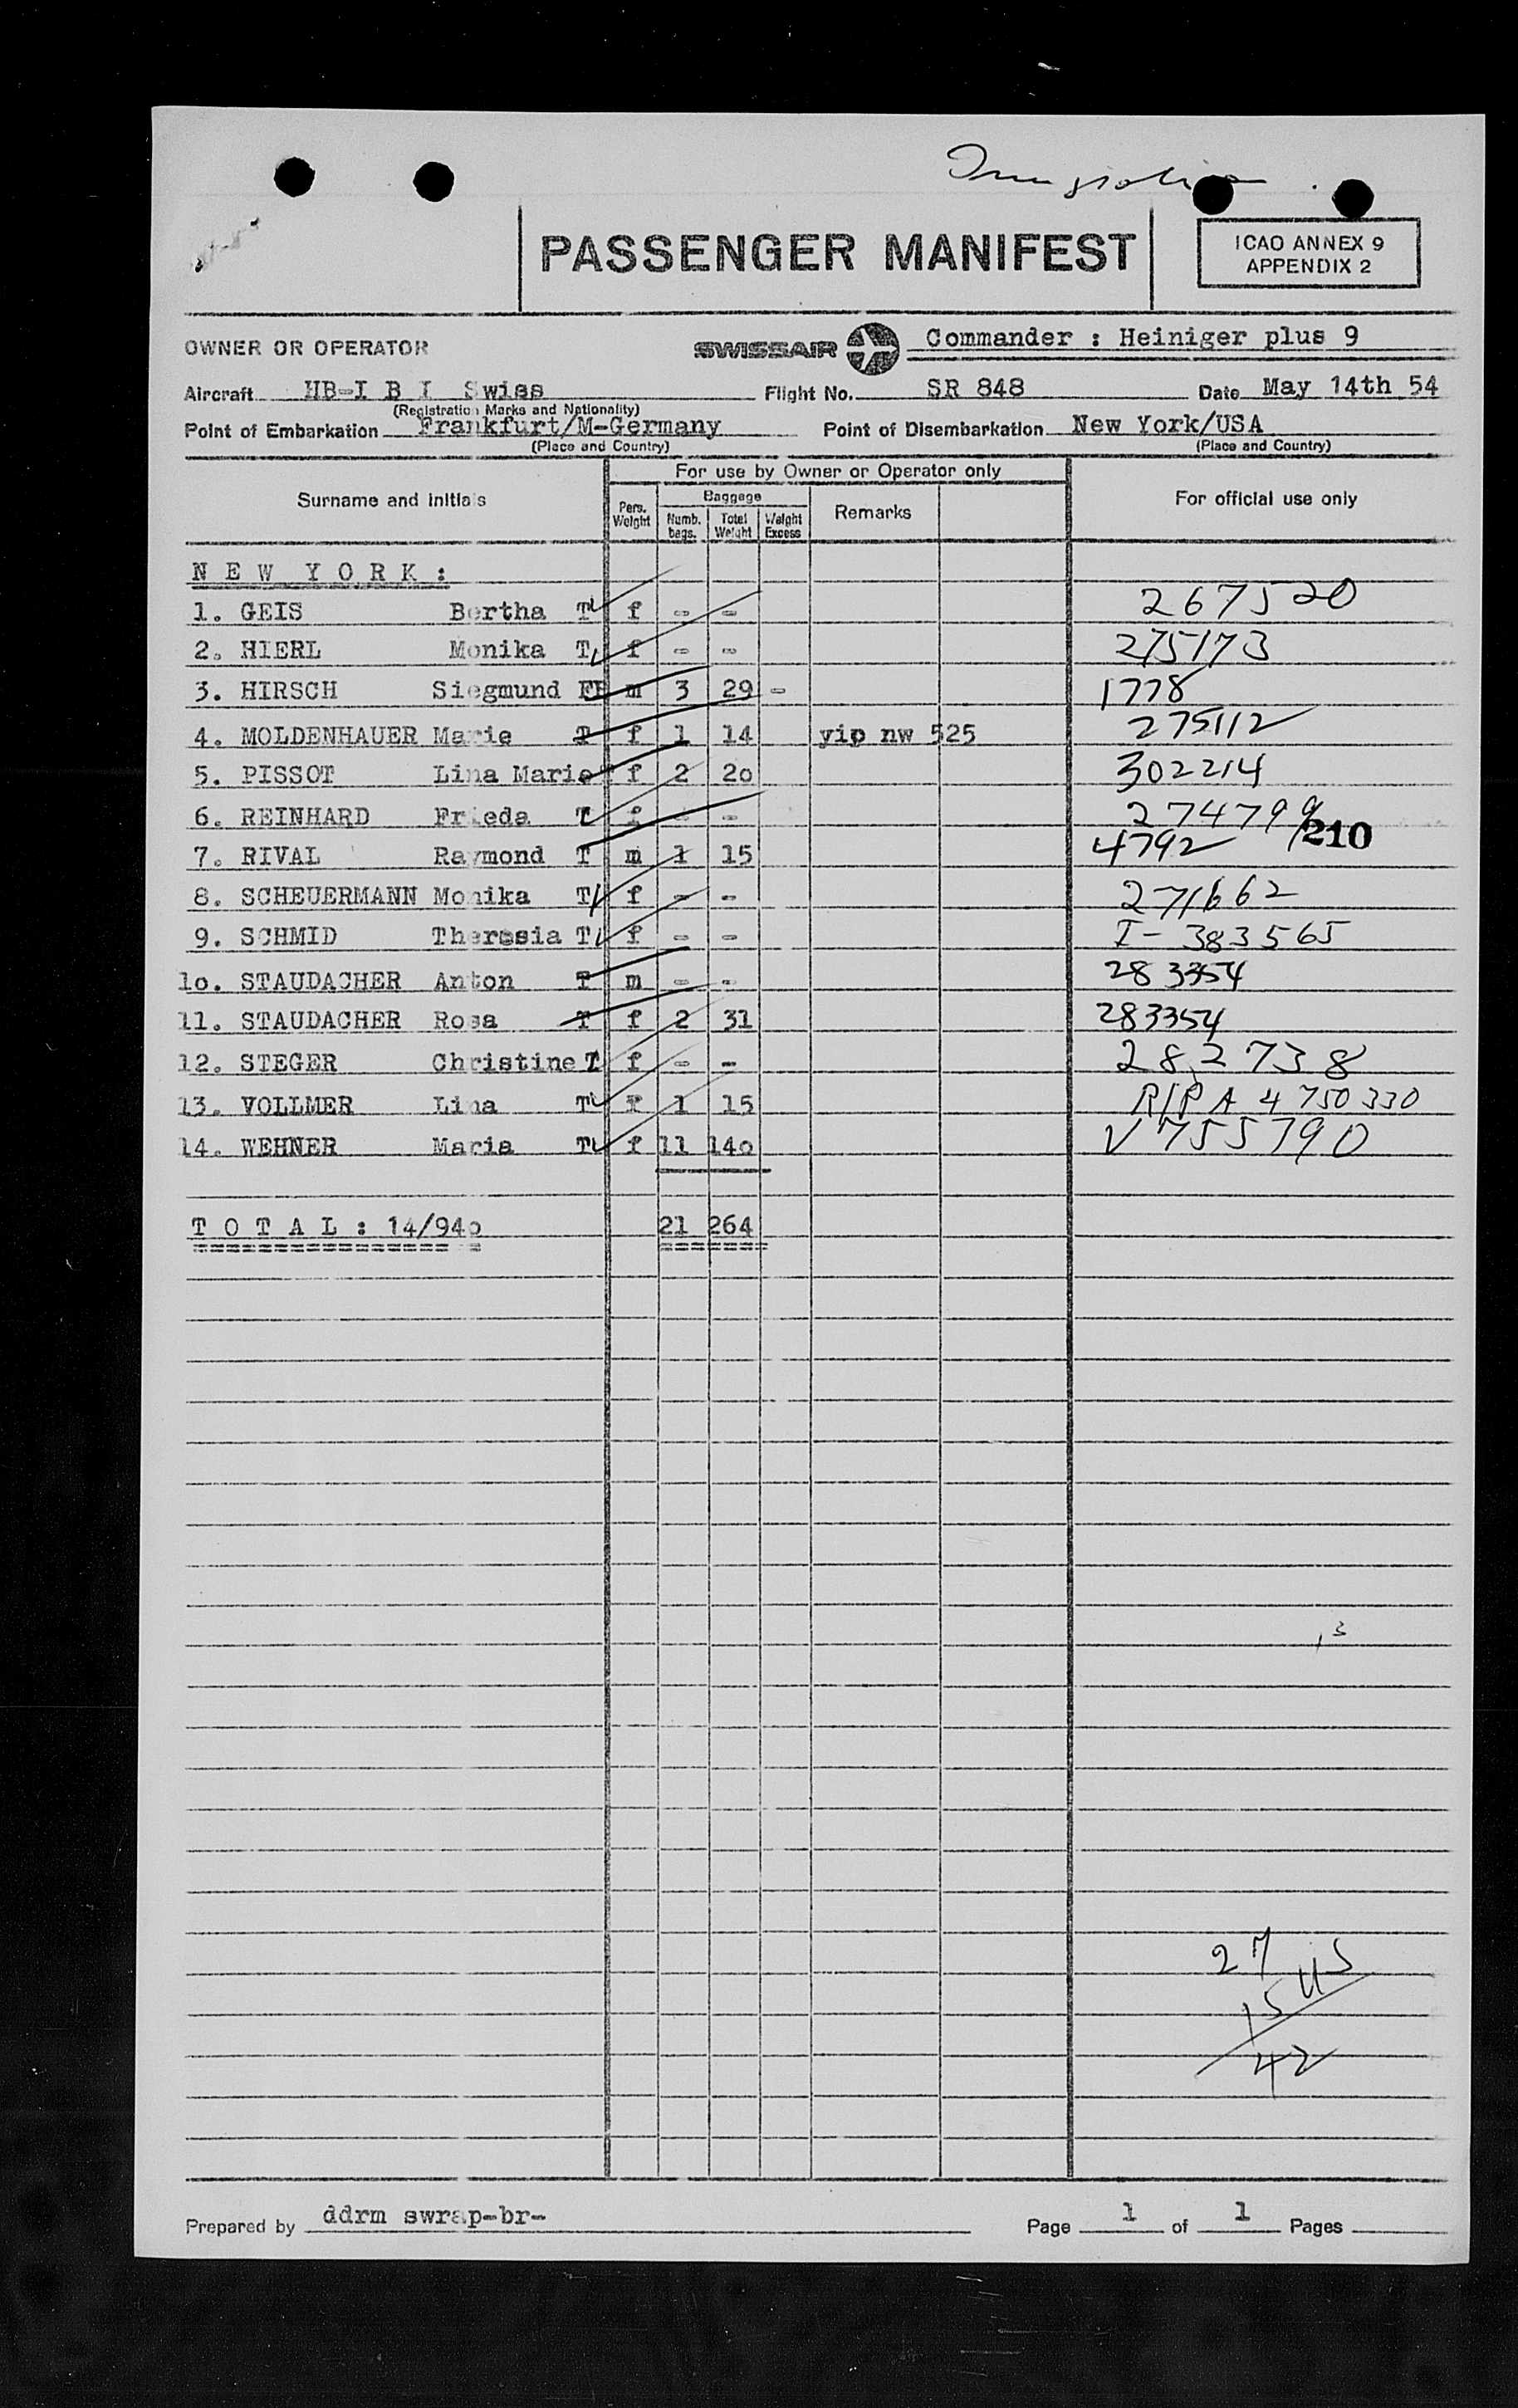 Immigration
PASSENGER MANIFEST
ICAO ANNEX 9
APPENDIX 2
OWNER OR OPERATOR SWISSAIR Commander : Heiniger plus 9
Aircraft HB-I B I Swiss Flight No. SR 848 Date May 14th 54
(Registration Marks and Nationality)
Point of Embarkation Frankfurt/M-Germany Point of Disembarkation New York/USA
(Place and Country) (Place and Country)
For use by Owner or Operator only
Surname and initials Pers. Weight Baggage Numb. bags. Total Weight Weight Excess Remarks For official use only
N E W Y O R K :
1. GEIS Bertha T f - - 267520
2. HIERL Monika T f - - 275173
3. HIRSCH Siegmund m 3 29 - 1778
4. MOLDENHAUER Marie T f 1 14 yip nw 525 275112
5. PISSOT Lina Marie f 2 2o 302214
6. REINHARD Frieda T f - 274799
210
7. RIVAL Raymond T m 1 15 4792
8. SCHEUERMANN Monika T f - - 271662
9. SCHMID Theresia T f - - I-383565
1o. STAUDACHER Anton T m - - 283354
11. STAUDACHER Rosa T f 2 31 283354
12. STEGER Christine T f - - 282738
13. VOLLMER Lina T f 1 15 R/P A 4 750 330
14. WEHNER Maria T f 11 14o V 755790
T O T A L : 14/94o 21 264
27
15 US
42
Prepared by ddrm swrap-br- Page 1 of 1 Pages